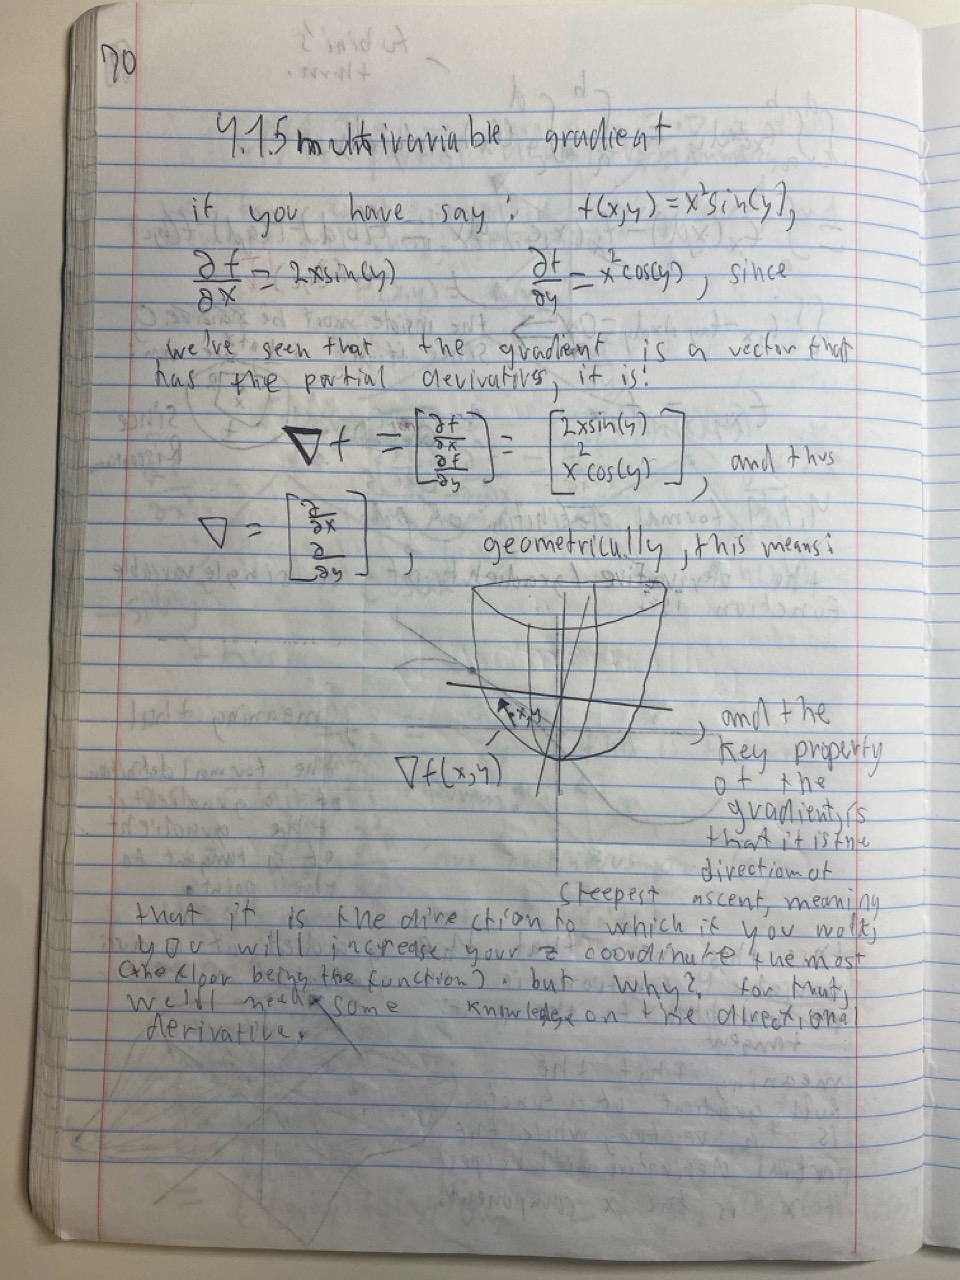 70
4.1.5 multivariable gradient
if you have say: f(x,y) = x²sin(y),
∂f/∂x = 2xsin(y) ∂f/∂y = x²cos(y), since
we've seen that the gradient is a vector that
has the partial derivatives, it is:
∇f = [∂f/∂x ∂f/∂y] = [2xsin(y) x²cos(y)], and thus
∇ = [∂/∂x ∂/∂y], geometrically, this means:
x,y
∇f(x,y)
, and the
key property
of the
gradient, is
that it is the
direction of
steepest ascent, meaning
that it is the direction to which if you walk,
you will increase your z coordinate the most
(the floor being the function). but why? for that,
we'll need some knowledge on the directional
derivative.